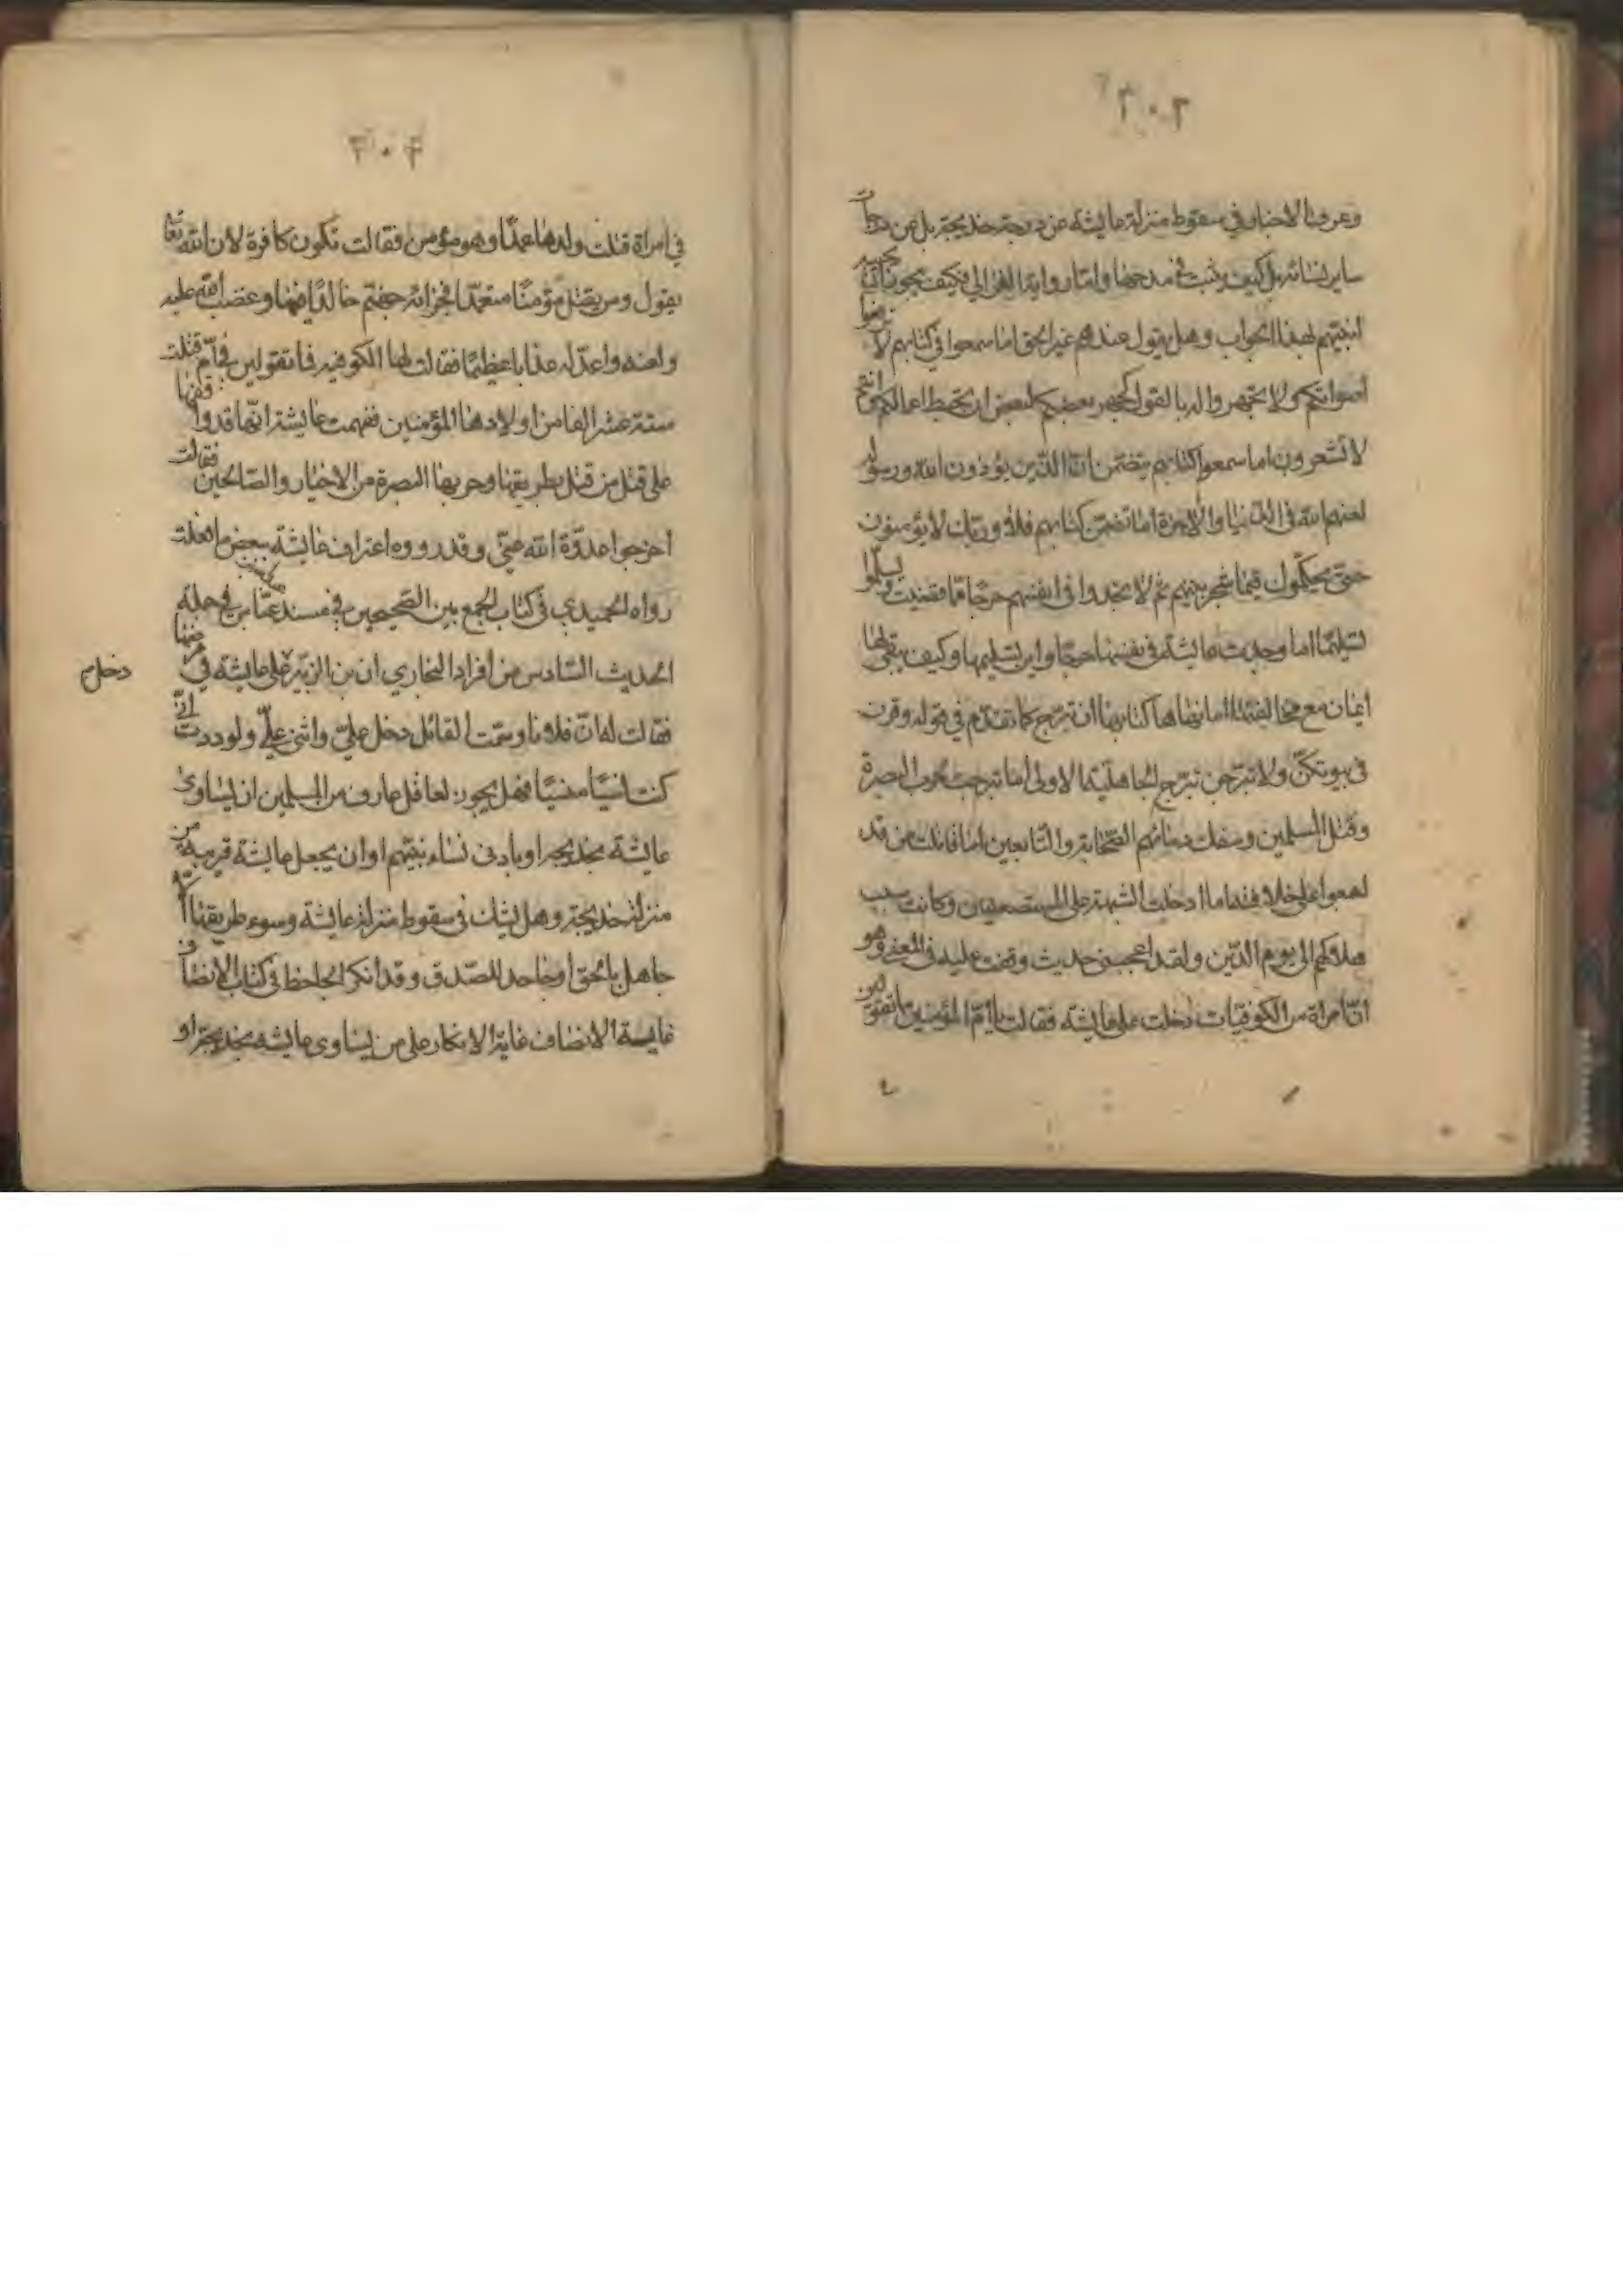 ٣٠٣
وعرف الاخبار في سقوط منزلة عايشه عن درجة خديجة بل عن درجات
ساير نسائه بل كيف يثبت في مدحها وامثار رواية الغزالي فكيف يجوز تكذيب
لنبيهم لهذا الجواب وهل يقول عندهم غير الحق اما سمعوا في كتابهم لا ترفعوا
اصواتكم ولا تجهروا له بالقول كجهر بعضكم لبعض ان تحبط اعمالكم وانتم
لا تشعرون اما سمعوا كتابهم يتضمن ان الذين يؤذون الله ورسوله
لعنهم الله في الدنيا والاخرة اما تضمن كتابهم فلا وربك لا يؤمنون
حتى يحكموك فيما شجر بينهم ثم لا يجدوا في انفسهم حرجا مما قضيت ويسلموا
تسليما اما وجدت عايشة في نفسها حرجا واين تسليمها وكيف يبقى لها
ايمان مع مخالفتها اما نهاها كتابها ان تبرج كما تقدم في قوله وقرن
في بيوتكن ولا تبرجن تبرج الجاهلية الاولى اما تبرجت بحرب البصرة
وقتل المسلمين وسفك دمائهم الصحابة والتابعين اما قاتلت من قد
اجمعوا على خلافته اما ادخلت الشبهة على المستضعفين وكانت سبب
هلاكهم الى يوم الدين ولقد اعجبني حديث وقفت عليه في المعنى وهو
ان امراة من الكوفيات دخلت على عايشه فقالت يا ام المؤمنين ما تقولين
٣٠٤
في امراة قتلت ولدها عمدا وهو مؤمن فقالت تكون كافرة لان الله تعالى
يقول ومن يقتل مؤمنا متعمدا فجزائه جهنم خالدا فيها وغضب الله عليه
ولعنه واعد له عذابا عظيما فقالت لها الكوفيه فما تقولين في ام قتلت
ستة عشر الفا من اولادها المؤمنين ففهمت عايشة انها قد وافقتها
على قتل من قتل بطريقها وحربها البصرة من الاخيار والصالحين فقالت
اخرجوا عدوة الله عني وقد رووه اعتراف عايشة ببعض ما فعلت
رواه الحميدي في كتاب الجمع بين الصحيحين في مسند عباس في جملة
الحديث السادس من افراد البخاري ان بن الزبير على عايشه في مرضها
دخل
فقالت له ان فلانا وسمت القائل دخل علي واثنى علي ولوددت اني
كنت نسيا منسيا فهل يجوز لعاقل عارف من المسلمين ان يساوى
عايشة بخديجة او بادنى نساء نبيهم او ان يجعل عايشة قريبة من
منزلة خديجة وهل يشك في سقوط منزلة عايشة وسوء طريقتها الا
جاهل بالحق او جاحد للصدق وقد انكر الجاحظ في كتاب الانصاف
غاية الانصاف غاية الانكار على من يساوى عايشه بخديجة او